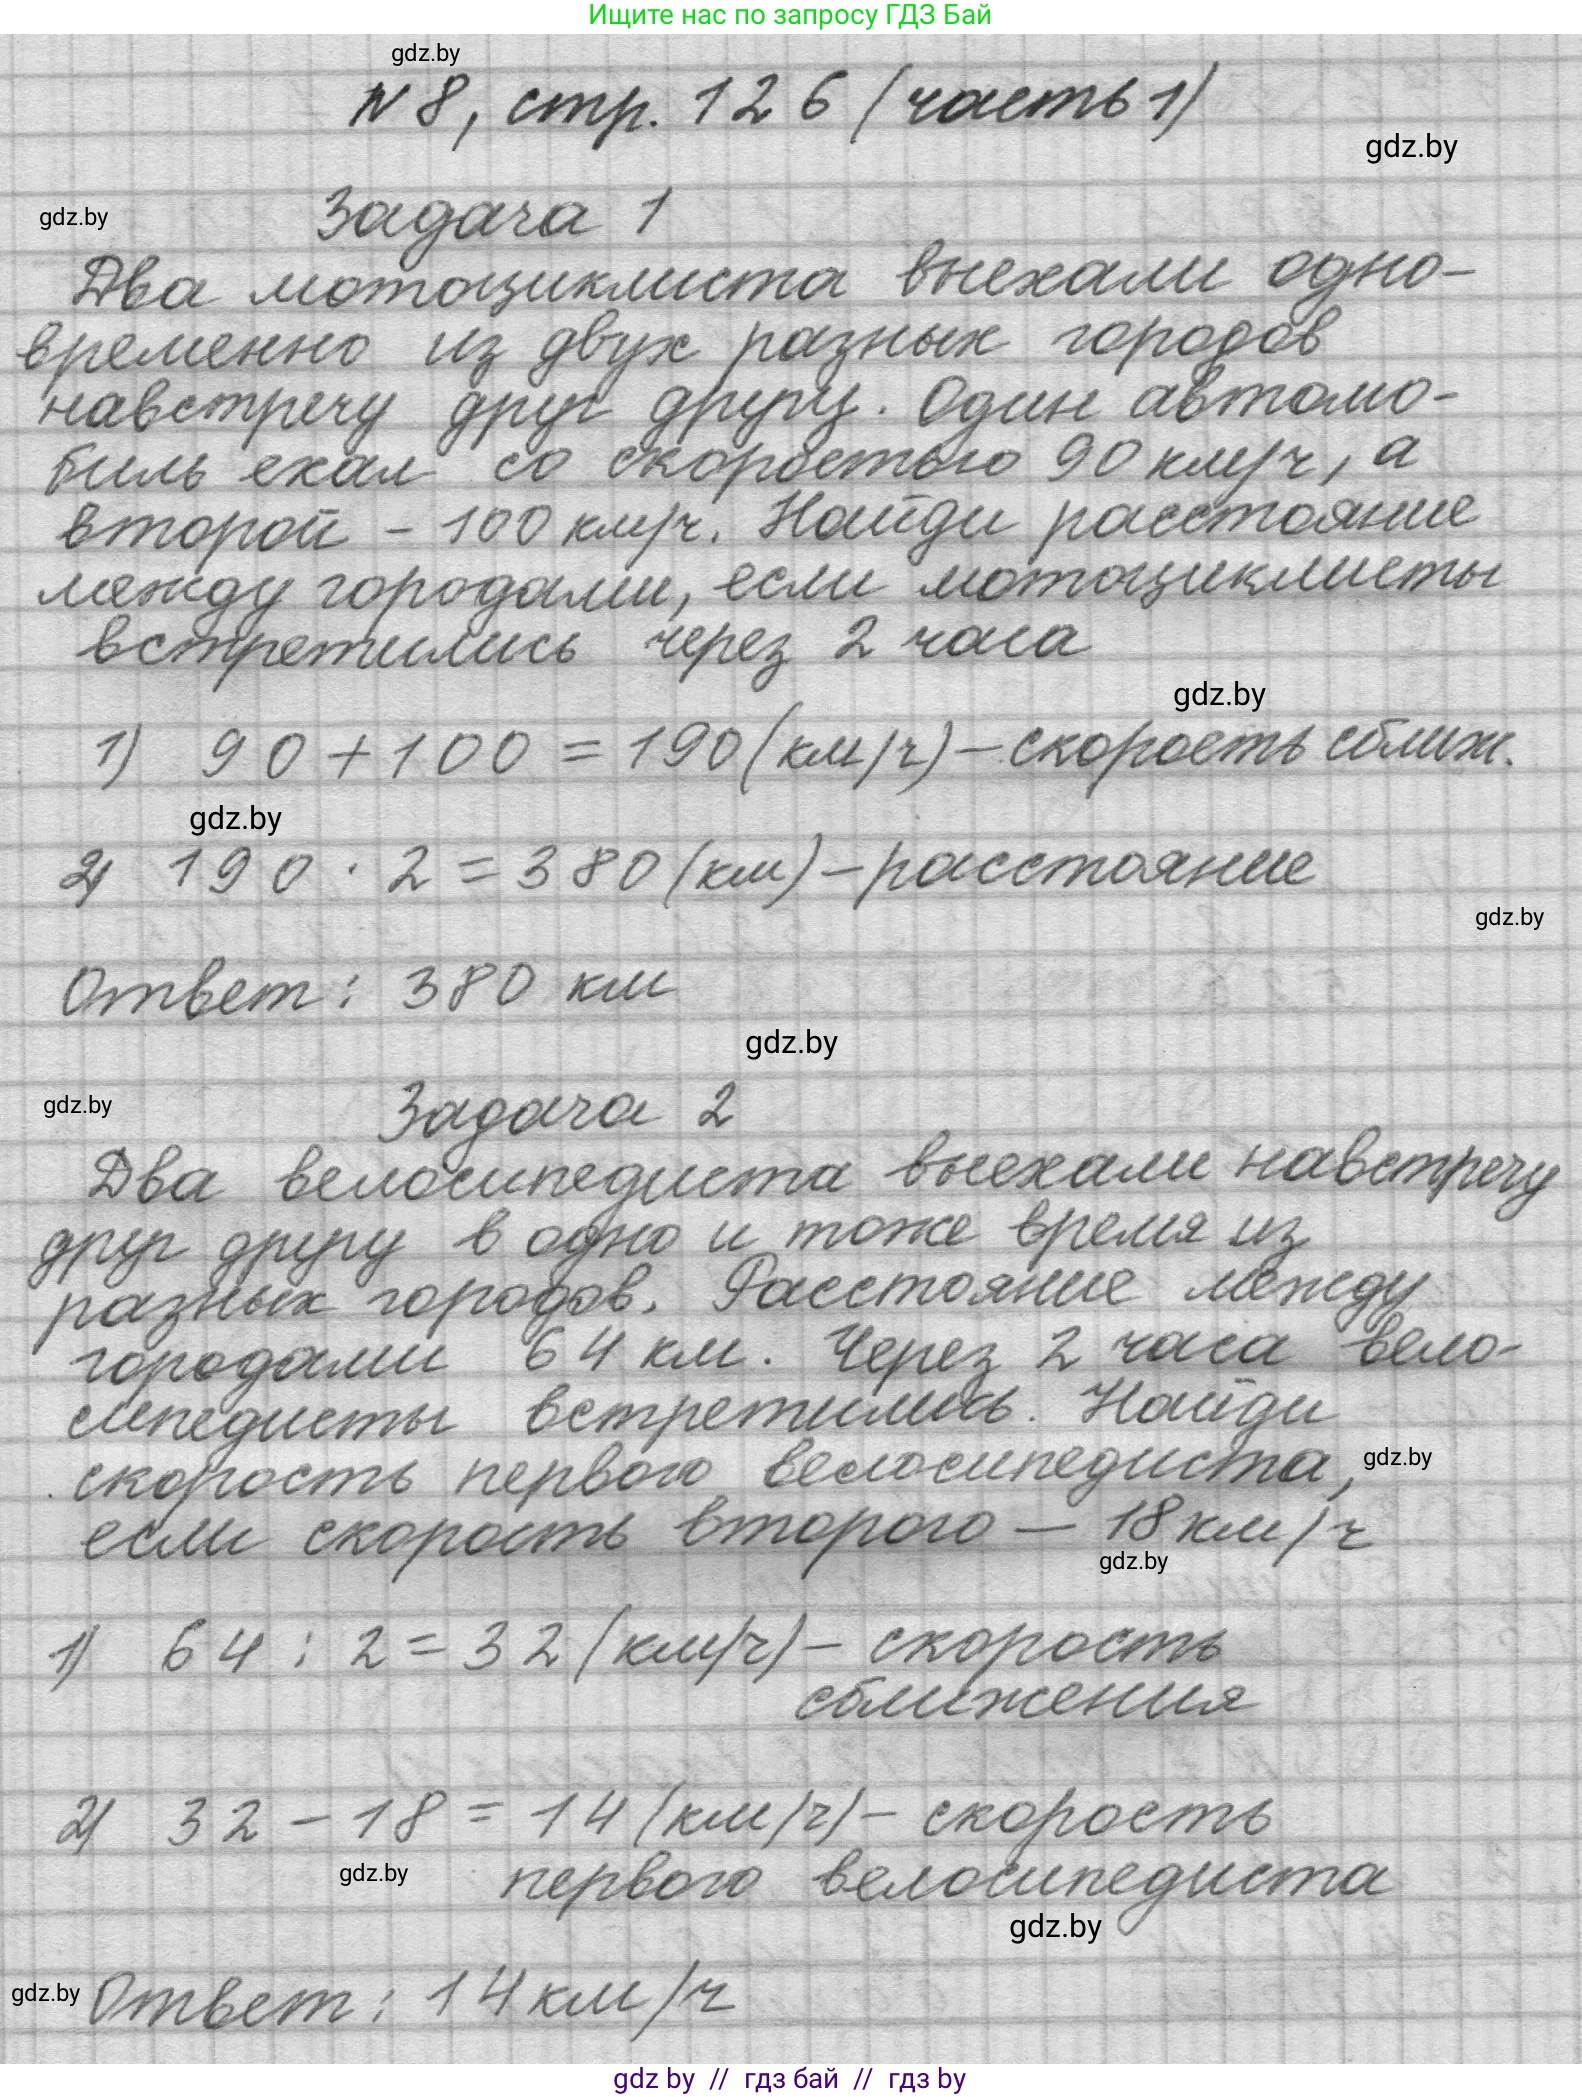 Ищите нас по запросу ГДЗ Бай
gdz.by
N 8, стр. 126 (часть 1)
gdz.by
gdz.by
Задача 1
Два мотоциклиста выехали одно-
временно из двух разных городов
навстречу друг другу. Один автомо-
биль ехал со скоростью 90 км/ч, а
второй - 100 км/ч. Найди расстояние
между городами, если мотоциклисты
встретились через 2 часа
gdz.by
1) 90 + 100 = 190 (км/ч) - скорость сближ.
gdz.by
2) 190 · 2 = 380 (км) - расстояние
gdz.by
Ответ: 380 км
gdz.by
gdz.by
Задача 2
Два велосипедиста выехали навстречу
друг другу в одно и тоже время из
разных городов. Расстояние между
городами 64 км. Через 2 часа вело-
сипедисты встретились. Найди
скорость первого велосипедиста,
gdz.by
если скорость второго — 18 км/ч
gdz.by
1) 64 : 2 = 32 (км/ч) - скорость
сближения
2) 32 - 18 = 14 (км/ч) - скорость
gdz.by
первого велосипедиста
gdz.by
gdz.by
Ответ: 14 км/ч
gdz by // гдз бай // гдз by